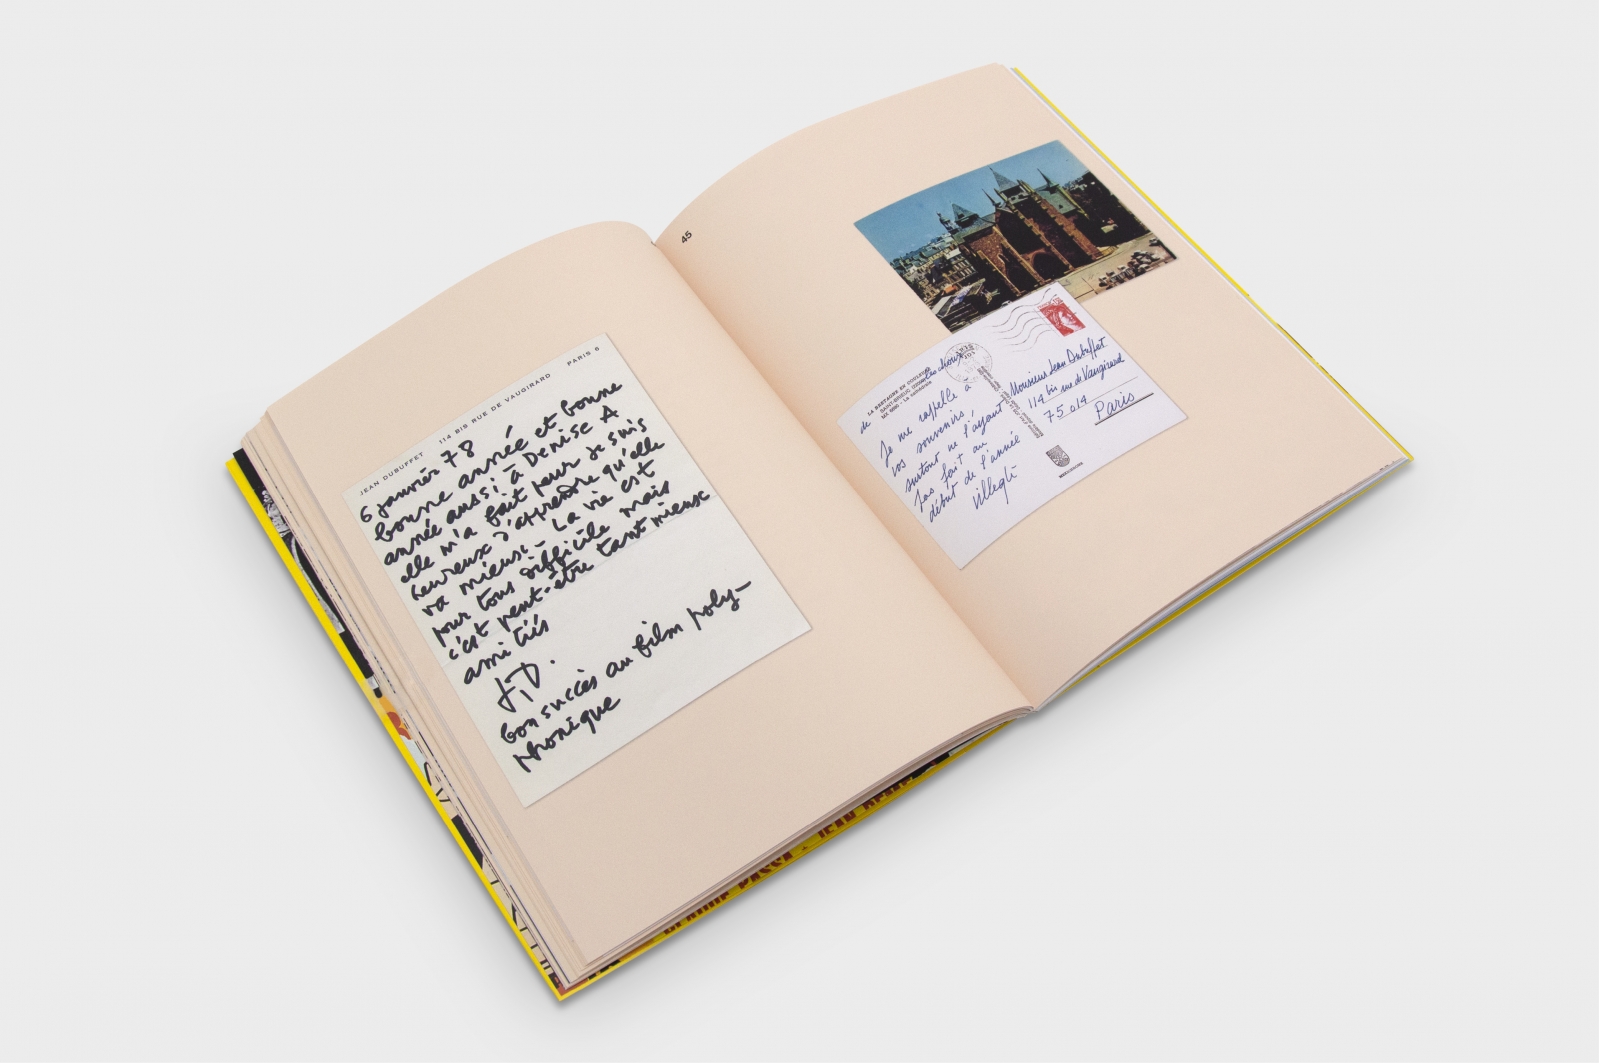 JEAN DUBUFFET 114 BIS RUE DE VAUGIRARD PARIS 6
6 janvier 78
bonne année et bonne
année aussi à Denise A
elle m'a fait peur je suis
heureux d'apprendre qu'elle
va mieux - La vie est
pour tous difficile mais
c'est peut-être tant mieux
amitiés
J.D.
bon succès au film poly-
phonique
45
LA BRETAGNE EN COULEURS
SAINT-BRIEUC
La cathédrale
de
Je me rappelle à
vos souvenirs,
surtout ne l'ayant
pas fait au
début de l'année
villeglé
Monsieur Jean Dubuffet
114 bis rue de Vaugirard
75014
Paris